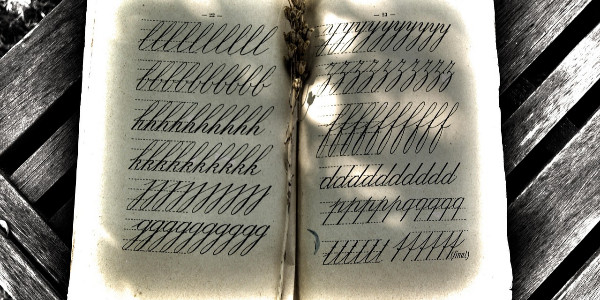 llllllllll
bbbbbbbbbb
hhhhhhhhhh
kkkkkkkkkk
jjjjjjjjjj
gggggggggg
yyyyyyyyyy
zzzzzzzzzz
ffffffffff
dddddddddd
ppppppqqqqq
tttttt tttttt (final)